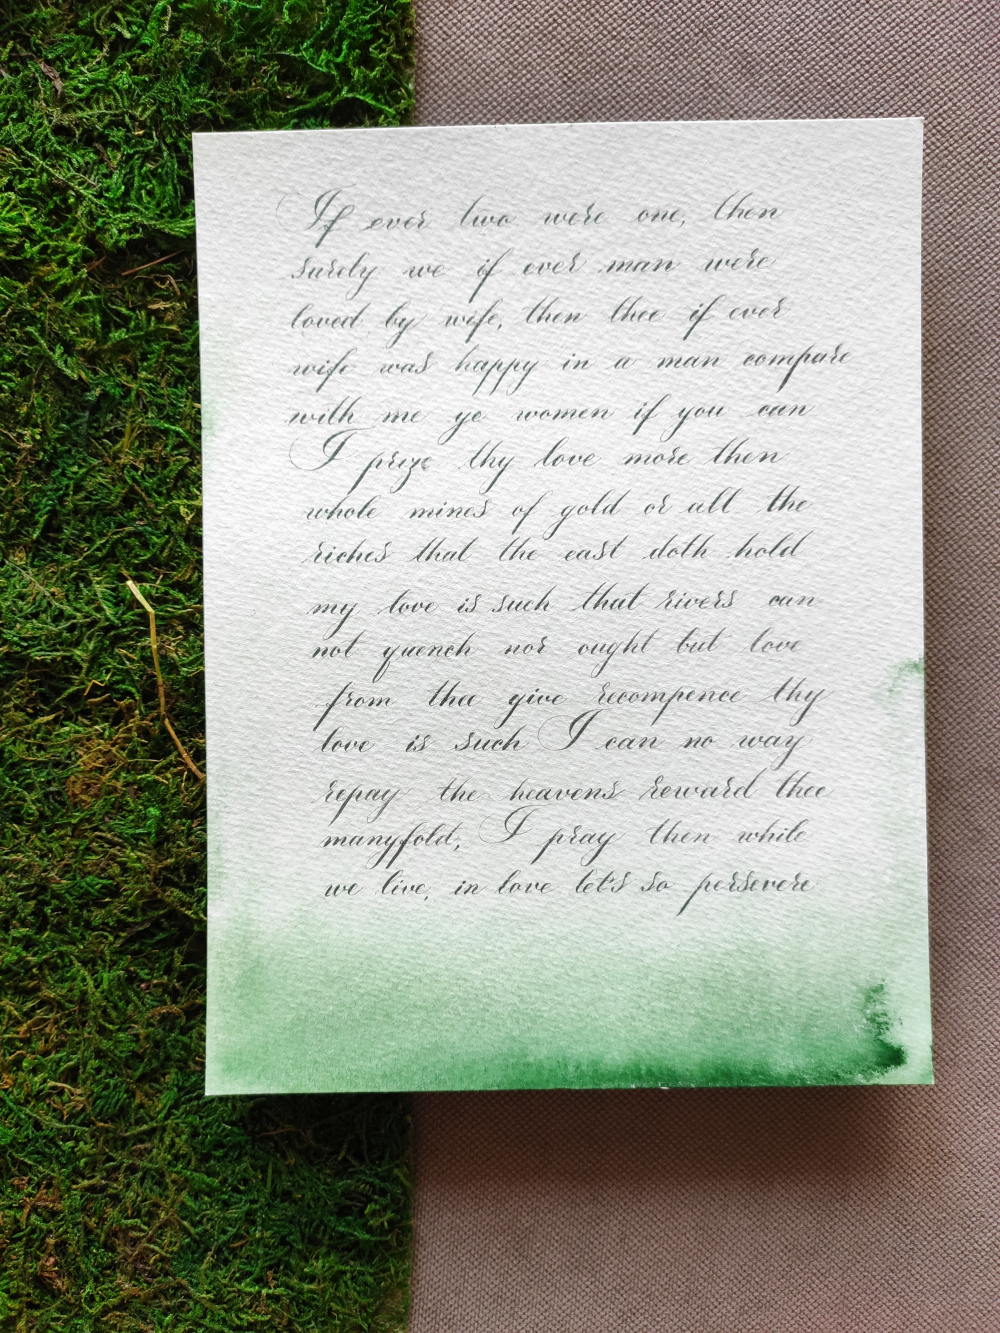 If ever two were one, then
surely we if ever man were
loved by wife, then thee if ever
wife was happy in a man compare
with me ye women if you can
I prize thy love more then
whole mines of gold or all the
riches that the east doth hold
my love is such that rivers can
not quench nor ought but love
from thee give recompence thy
love is such I can no way
repay the heavens reward thee
manyfold, I pray then while
we live, in love let's so persevere